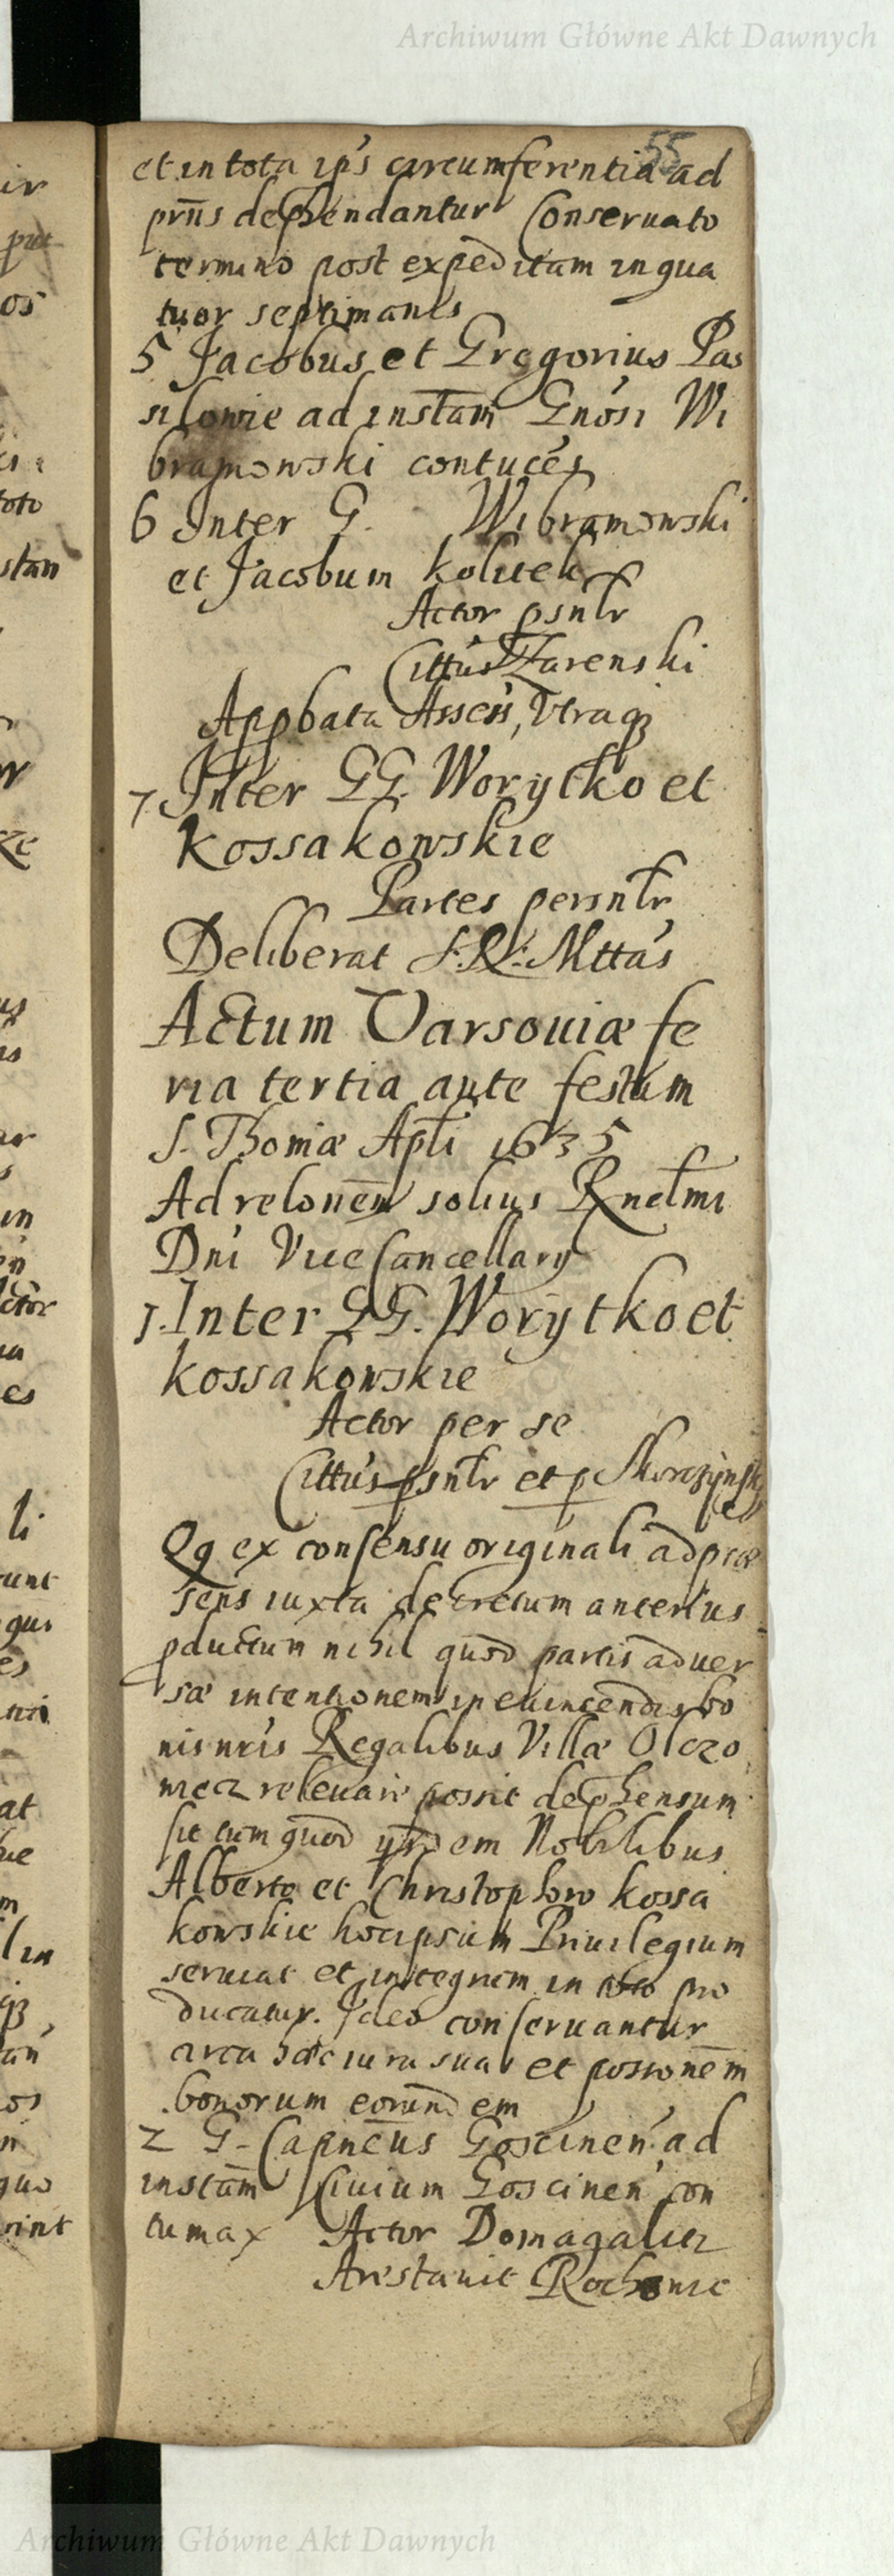 Archiwum Główne Akt Dawnych
55
et in tota ip's circumferentia ad
prn̄s dephendantur Conseruato
termino post expeditam in qua
tuor septimanis
5 Jacobus et Gregorius Pas
silowie ad instam̄ Gnosi Wi
bramowski contuces
6 Inter G. Wibramowski
et Jacobum
Actor psntr
Cittus Zarenski
Appbata Assess, Vtraq3
7. Inter GG. Worytko et
Kossakowskie
Partes persntr
Deliberat S. R. Mttas
Actum Varsouiæ fe
ria tertia ante festum
S. Thomæ Apli 1635
Ad relonem solius Rndmi
Dni Vice Cancellary
1. Inter GG. Worytko et
Kossakowskie
Actor per se
Cittus psntr et p
Qq ex consensu originali ad præ
sens iuxta decretum anterius
pductum nihil quod partis aduer
sæ intentionem in euincendis bo
nis nris Regalibus Villæ Olszo
releuare possit dephensum
sit cum quod ysdem Nobilibus
Alberto et Christophoro Kossa
kowskie hoc ipsum Priuilegium
seruiat et integrum in toto pro
ducatur. Ideo conseruantur
circa hæc iura sua et possonem
bonorum eorundem
2 G. Capneus Goscinen ad
instam Ciuium Goscinen con
tumax Actor Domagalicz
Arestauit
Archiwum Główne Akt Dawnych